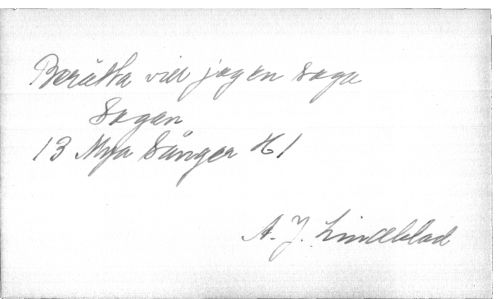 Berätta vill jag en saga
Sagan
13 Nya Sånger H 1
A. F. Lindblad